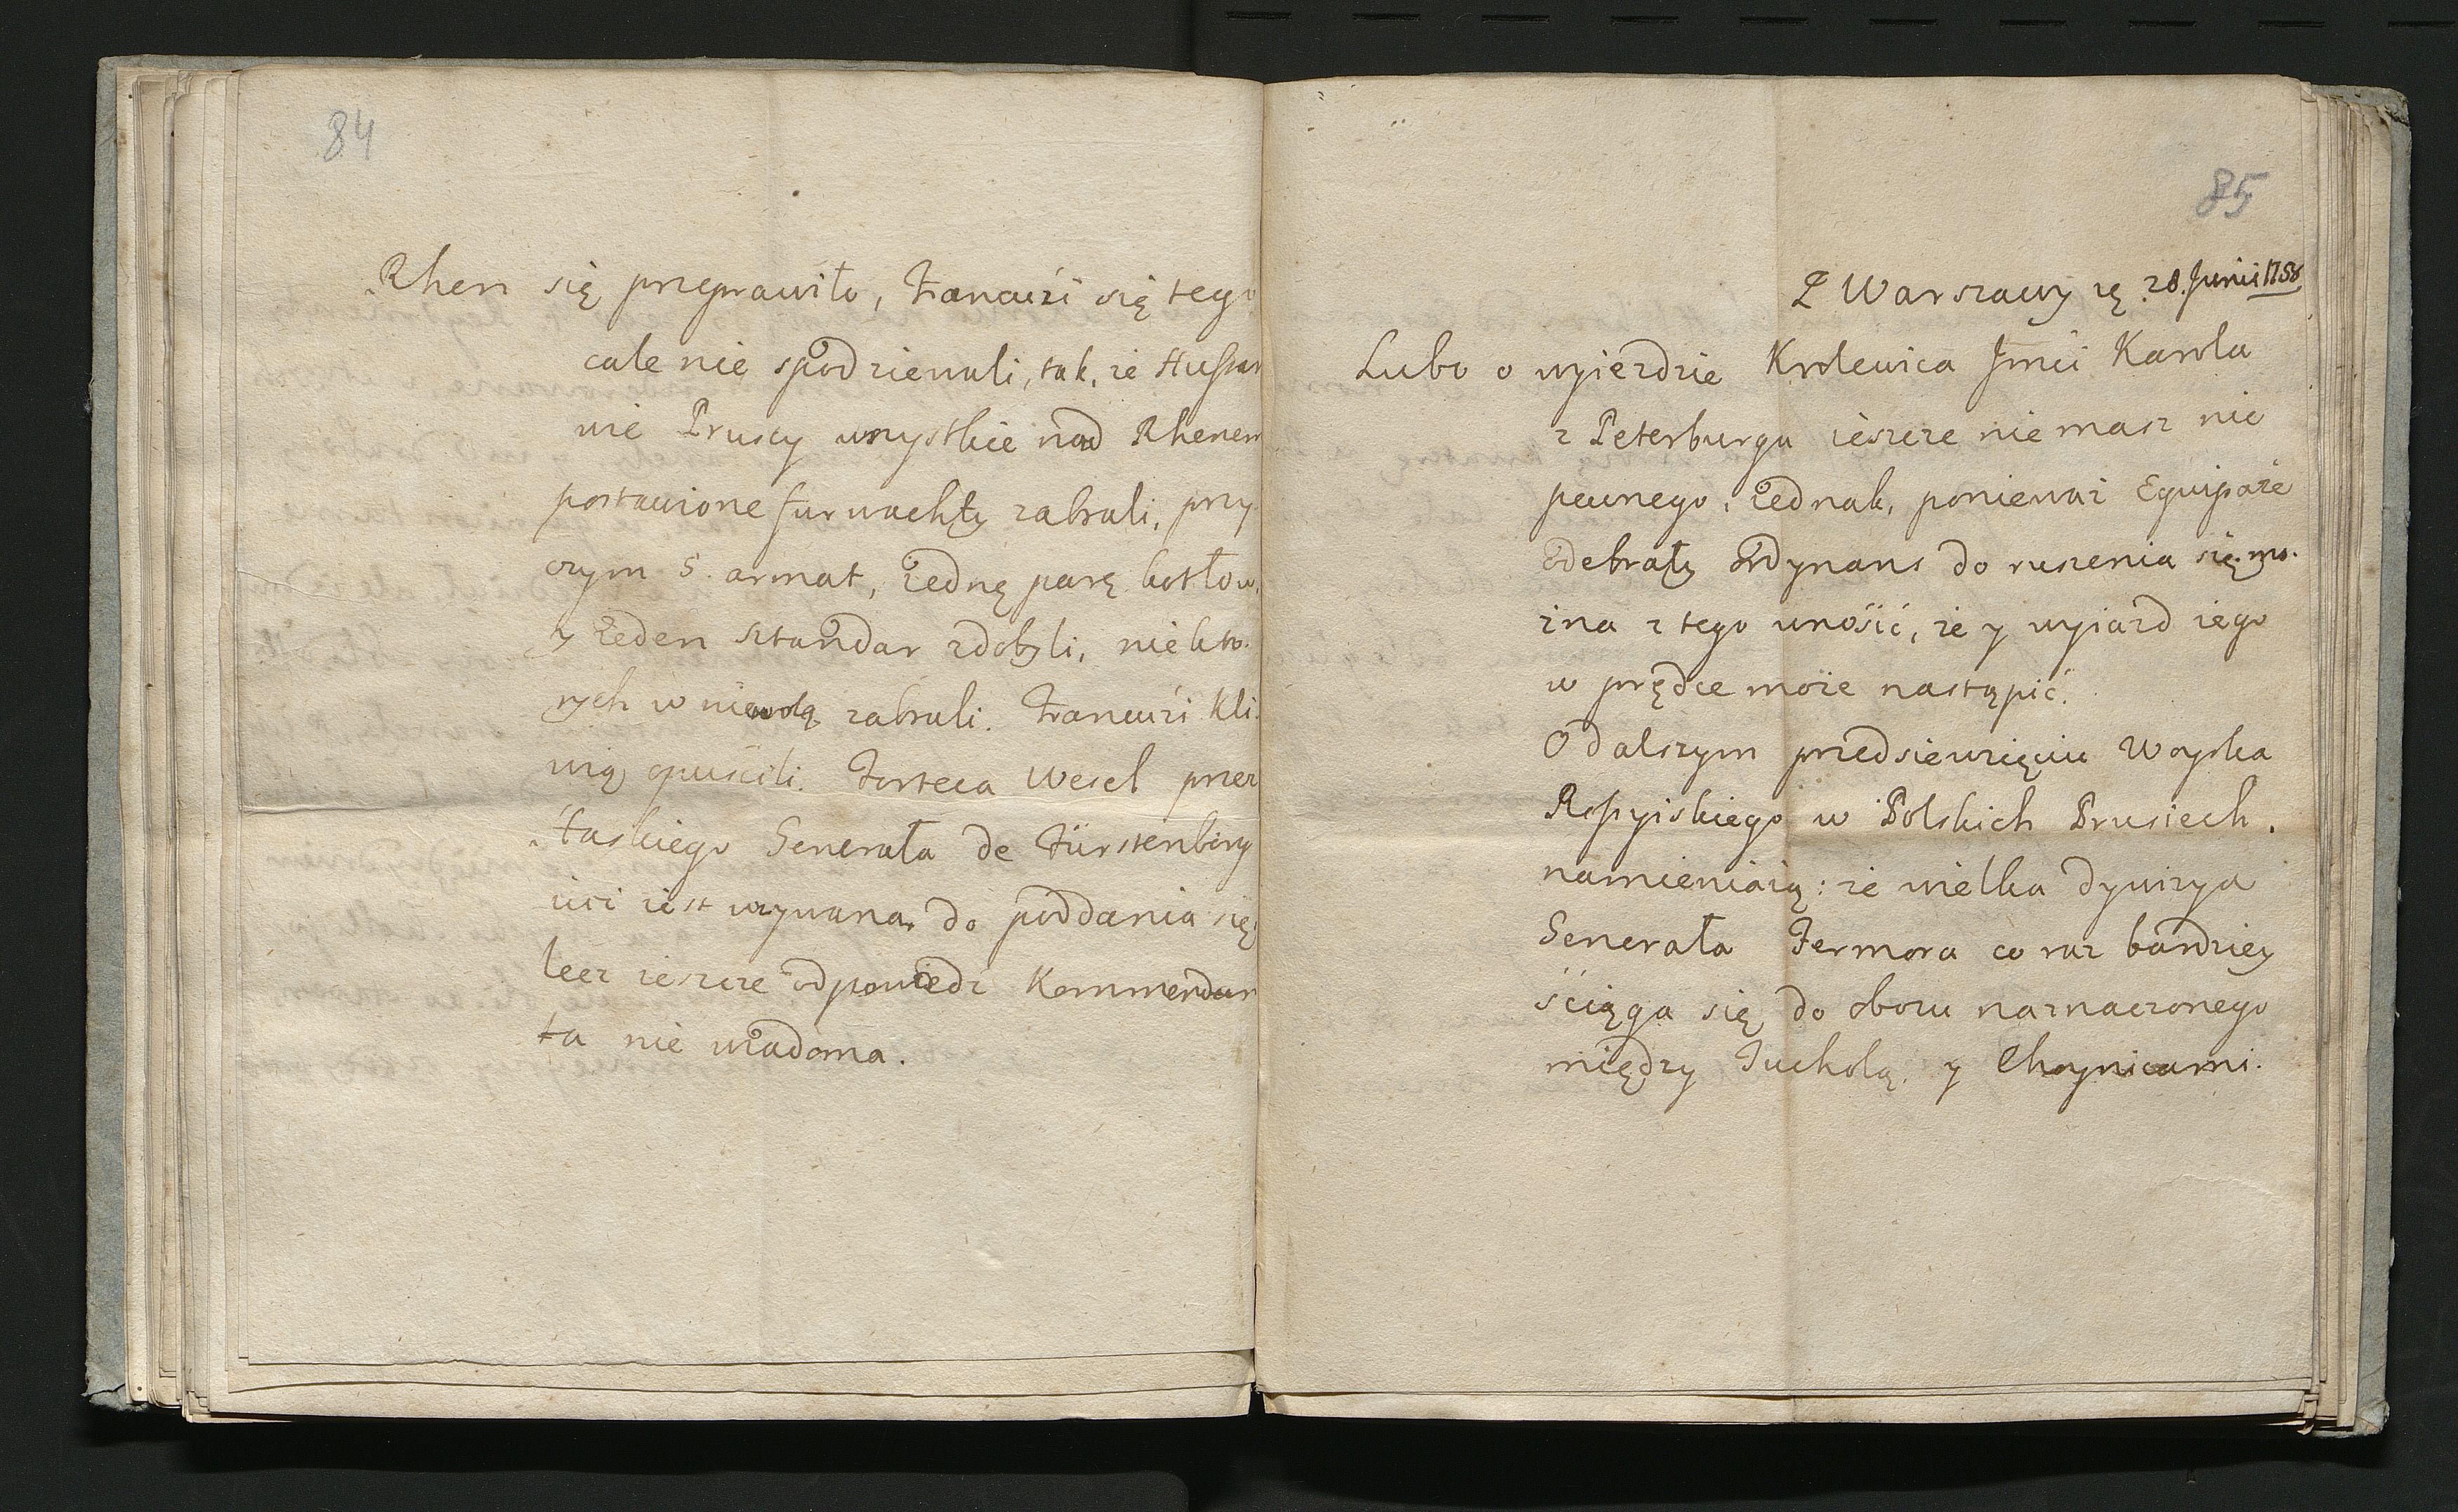 84
Rhen się przeprawiło, Francuzi się tego
cale nie spodziewali, tak, ze Hussar
wie Pruscy wszystkie nad Rhenem
postawione furwachty zabrali, przy
czym 5. armat, iednę parę kotłow,
y ieden sztandar zdobyli, niekto-
rych w niewolą zabrali. Francuzi Kli-
wią opuścili. Forteca Wesel przez
Generała de Fürstenberg
iest wzywana do poddania się,
lecz ieszcze odpowiedz Kommendan
ta nie wiadoma.
85
Z Warszawy 28. Junii 1758
Lubo o wyiezdzie Krolewica Jmći Karola
z Peterburga ieszcze nie masz nic
pewnego; iednak, poniewaz Equipaże
odebrały Ordynans do ruszenia się, mo-
zna z tego wnosić, ze y wyiazd iego
w prędce może nastąpić.
O dalszym przedsiewzięciu Woyska
Rossyiskiego w Polskich Prusiech,
namieniaią: ze wielka dywizya
Generała Fermora co raz bardziey
ściąga się do obozu naznaczonego
między Tucholą y Choynicami.